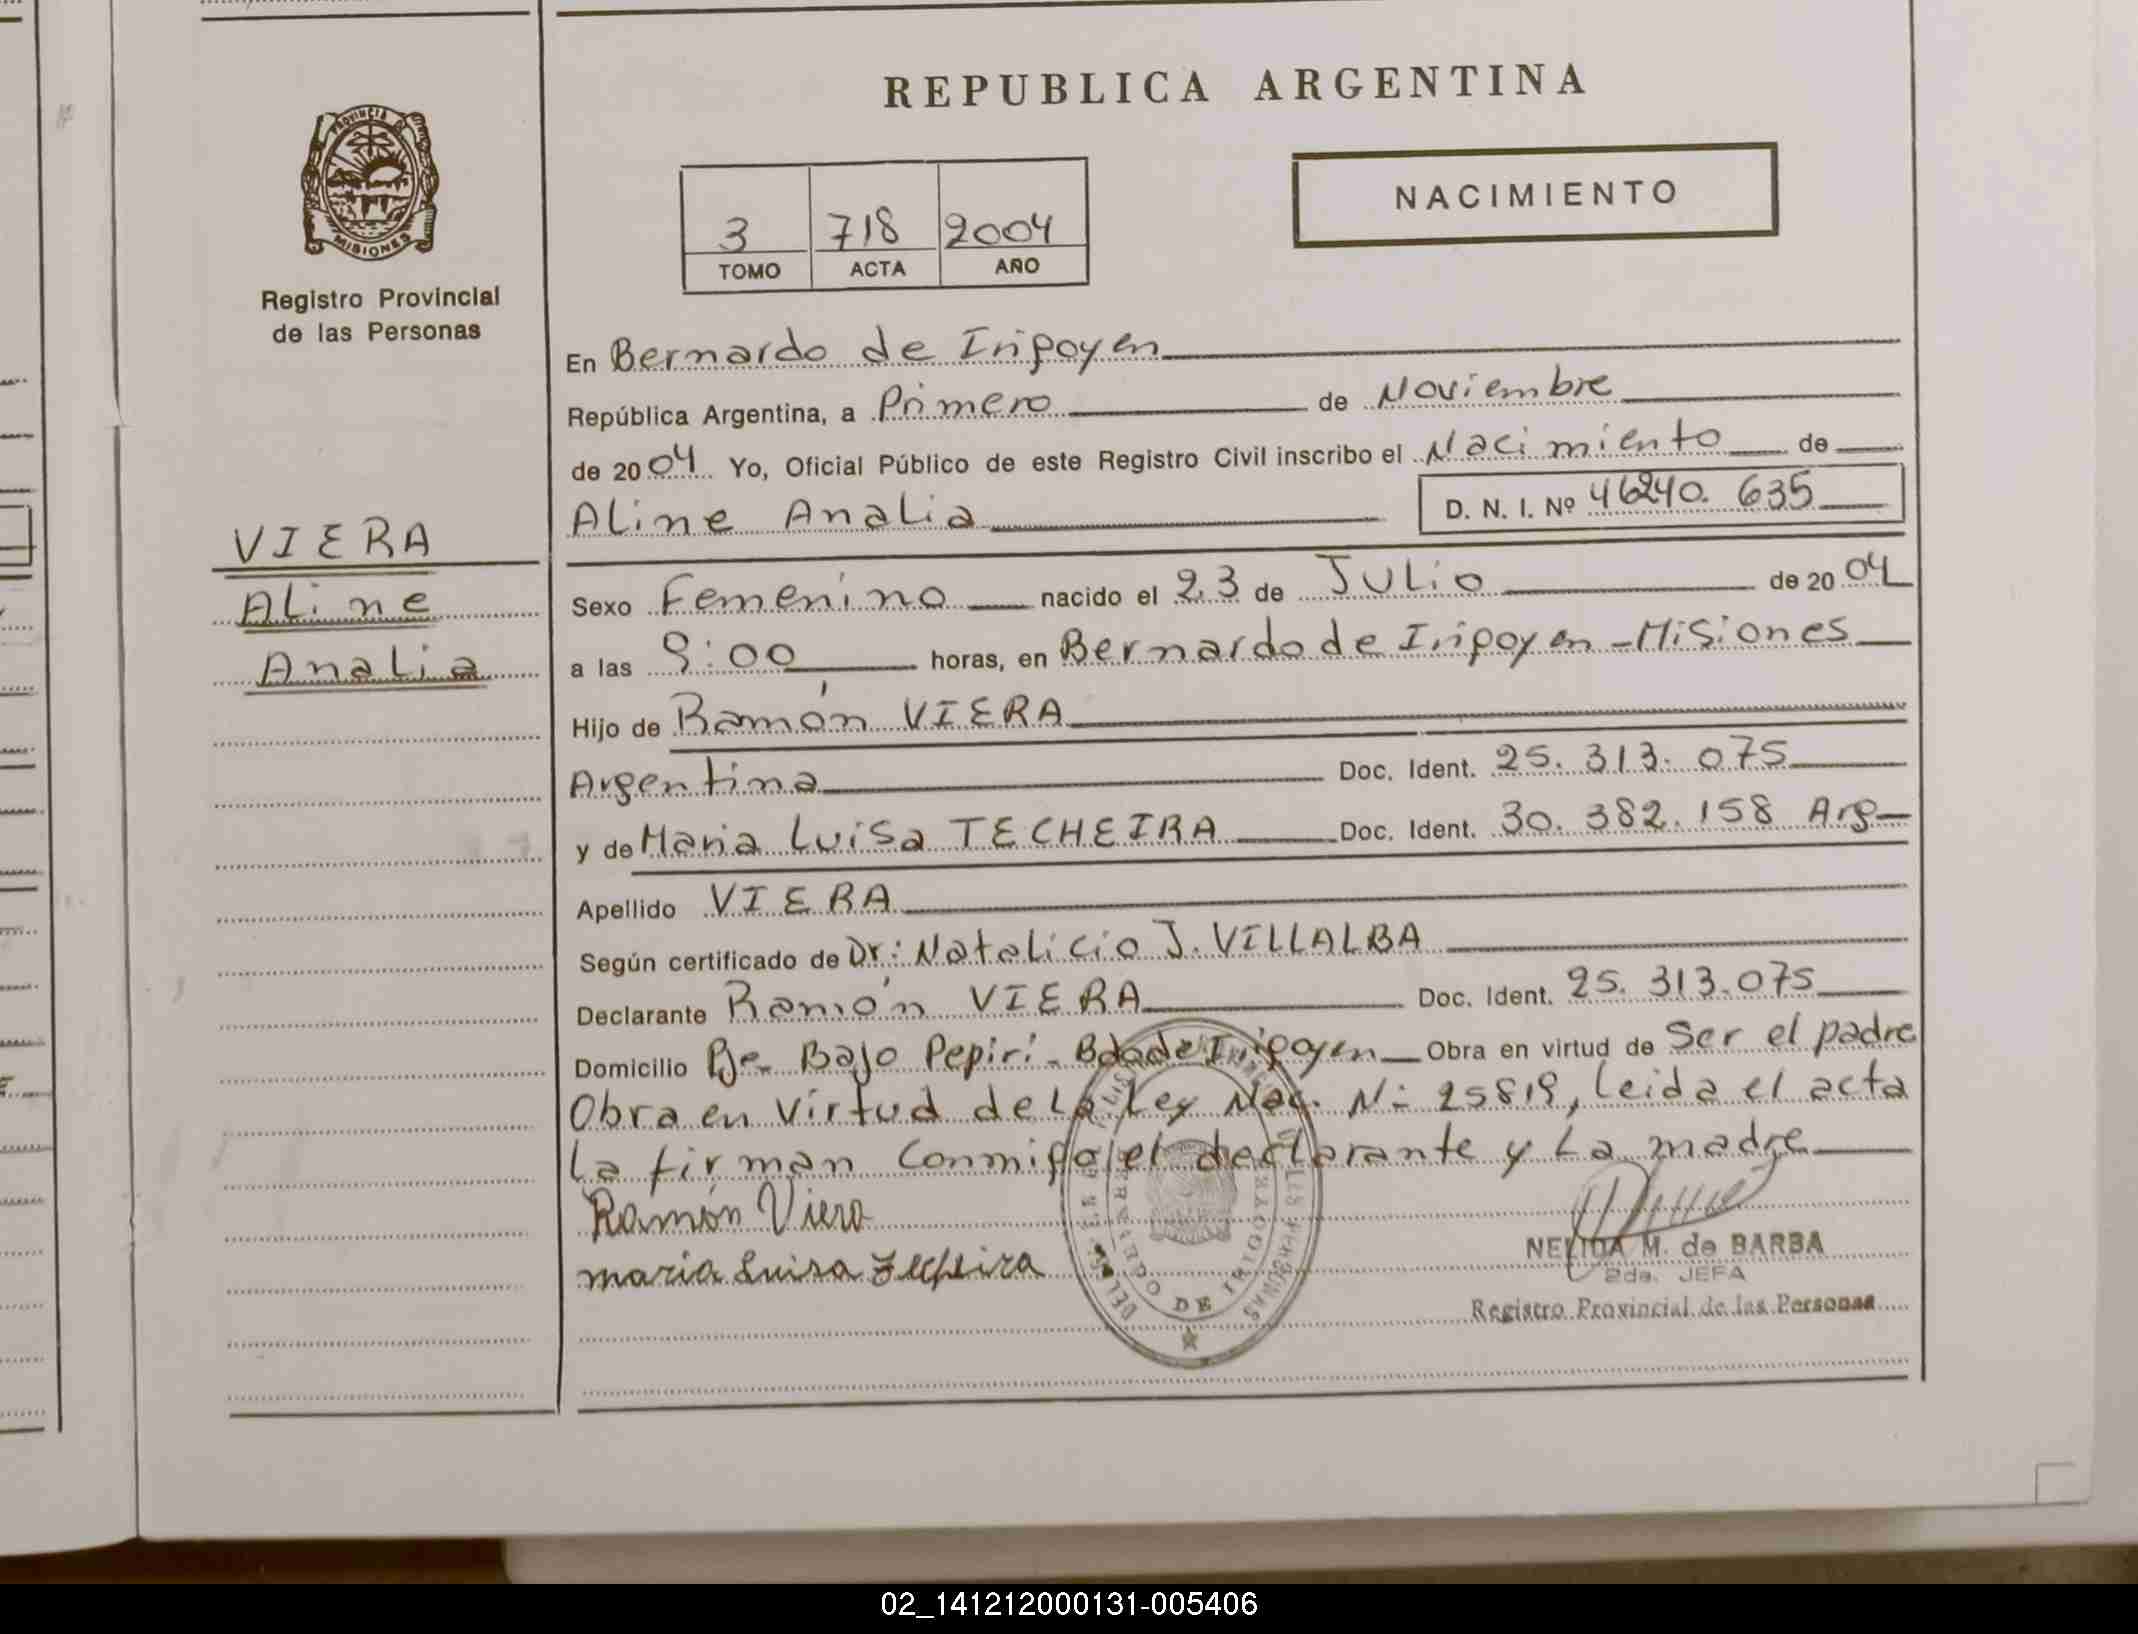 REPUBLICA ARGENTINA
PROVINCIA DE MISIONES
Registro Provincial
de las Personas
NACIMIENTO
3 718 2004
TOMO ACTA AÑO
En Bernardo de Iripoyen
República Argentina, a Primero de Noviembre
de 2004 Yo, Oficial Público de este Registro Civil inscribo el Nacimiento de
Aline Analia D. N. I. Nº 46240.635
VIERA
Aline
Analia
Sexo Femenino nacido el 23 de Julio de 2004
a las 9:00 horas, en Bernardo de Iripoyen - Misiones
Hijo de Ramón VIERA
Argentina Doc. Ident. 25.313.075
y de Maria Luisa TECHEIRA Doc. Ident. 30.382.158 Arg
Apellido VIERA
Según certificado de Dr: Natalicio J. VILLALBA
Declarante Ramón VIERA Doc. Ident. 25.313.075
Domicilio Pje- Bajo Pepirí - Bdo de Iripoyen Obra en virtud de Ser el padre
Obra en virtud de la Ley Nac. N= 25819, leida el acta
la firman conmigo el declarante y la madre
Ramón Viera
maria Luisa Techeira
NELIDA M. de BARBA
2da. JEFA
Registro Provincial de las Personas
DE IRIGOYEN
02_141212000131-005406